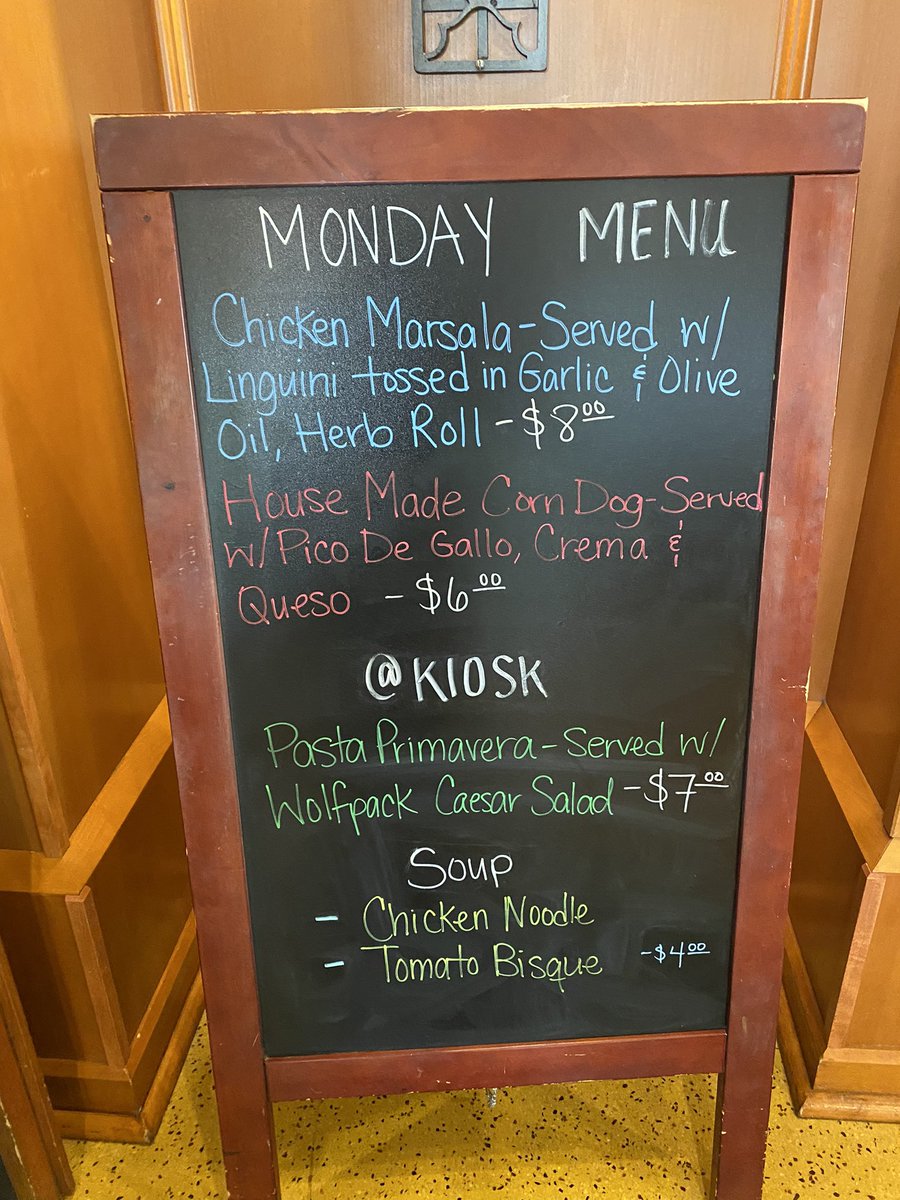 MONDAY MENU
Chicken Marsala-Served w/
Linguini tossed in Garlic & Olive
Oil, Herb Roll - $8.00
House Made Corn Dog-Served
w/Pico De Gallo, Crema &
Queso - $6.00
@KIOSK
Pasta Primavera - Served w/
Wolfpack Caesar Salad - $7.00
Soup
- Chicken Noodle
- Tomato Bisque - $4.00